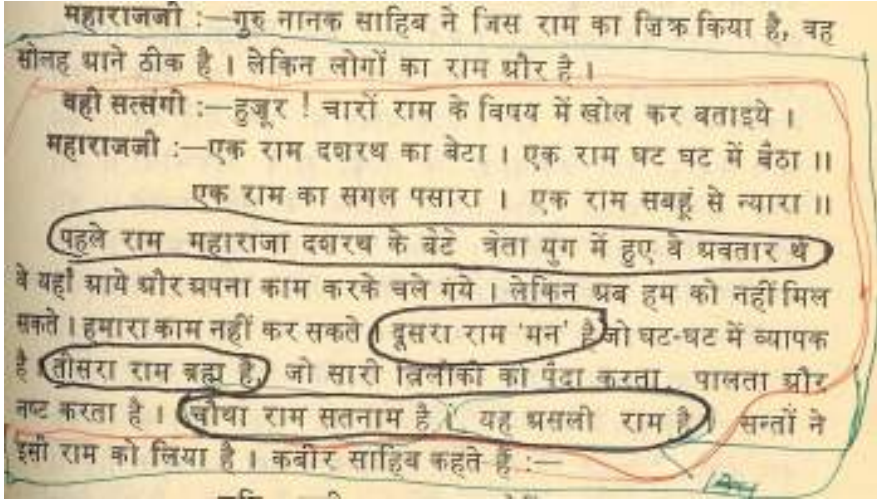 महाराजजी :—गुरु नानक साहिब ने जिस राम का ज़िक्र किया है, वह
सोलह आने ठीक है । लेकिन लोगों का राम और है ।
वही सत्संगी :—हुज़ूर ! चारों राम के विषय में खोल कर बताइये ।
महाराजजी :—एक राम दशरथ का बेटा । एक राम घट घट में बैठा ।।
एक राम का सगल पसारा । एक राम सबहूं से न्यारा ।।
पहले राम महाराजा दशरथ के बेटे त्रेता युग में हुए वे अवतार थे
वे यहाँ आये और अपना काम करके चले गये । लेकिन अब हम को नहीं मिल
सकते । हमारा काम नहीं कर सकते । दूसरा राम 'मन' है जो घट-घट में व्यापक
है । तीसरा राम ब्रह्म है, जो सारी त्रिलोकी को पैदा करता, पालता और
नष्ट करता है । चौथा राम सतनाम है । यह असली राम है । सन्तों ने
इसी राम को लिया है । कबीर साहिब कहते हैं :—